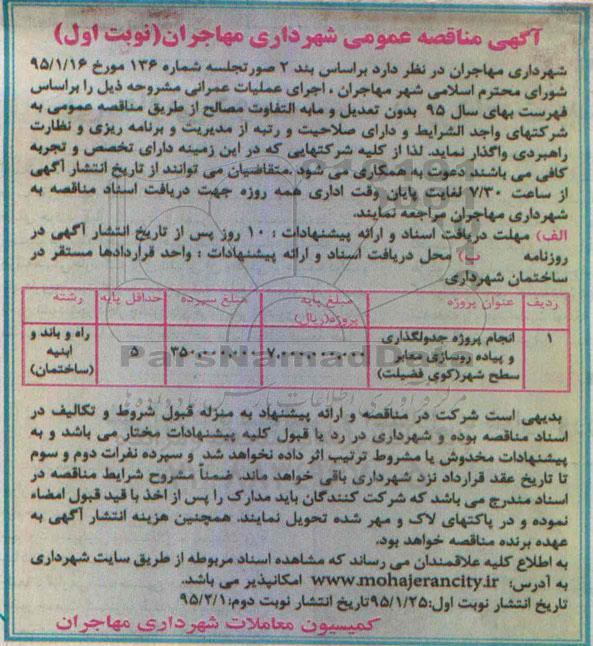 آگهی مناقصه عمومی شهرداری مهاجران(نوبت اول)
شهرداری مهاجران در نظر دارد براساس بند ۲ صورتجلسه شماره ۱۳۶ مورخ ۹۵/۱/۱۶
شورای محترم اسلامی شهر مهاجران ، اجرای عملیات عمرانی مشروحه ذیل را براساس
فهرست بهای سال ۹۵ بدون تعدیل و مابه التفاوت مصالح از طریق مناقصه عمومی به
شرکتهای واجد الشرایط و دارای صلاحیت و رتبه از مدیریت و برنامه ریزی و نظارت
راهبردی واگذار نماید. لذا از کلیه شرکتهایی که در این زمینه دارای تخصص و تجربه
کافی می باشند دعوت به همکاری می شود .متقاضیان می توانند از تاریخ انتشار آگهی
از ساعت ۷/۳۰ لغایت پایان وقت اداری همه روزه جهت دریافت اسناد مناقصه به
شهرداری مهاجران مراجعه نمایند.
الف) مهلت دریافت اسناد و ارائه پیشنهادات : ۱۰ روز پس از تاریخ انتشار آگهی در
روزنامه ب) محل دریافت اسناد و ارائه پیشنهادات : واحد قراردادها مستقر در
ساختمان شهرداری
ردیف عنوان پروژه مبلغ پایه پروژه(ریال) مبلغ سپرده حداقل پایه رشته
۱ انجام پروژه جدولگذاری و پیاده روسازی معابر سطح شهر(کوی فضیلت) ۷۰۰۰۰۰۰۰۰۰۰ ۳۵۰۰۰۰۰۰۰ ۵ راه و باند و ابنیه (ساختمان)
ParsNamadData
بدیهی است شرکت در مناقصه و ارائه پیشنهاد به منزله قبول شروط و تکالیف در
اسناد مناقصه بوده و شهرداری در رد یا قبول کلیه پیشنهادات مختار می باشد و به
پیشنهادات مخدوش یا مشروط ترتیب اثر داده نخواهد شد و سپرده نفرات دوم و سوم
تا تاریخ عقد قرارداد نزد شهرداری باقی خواهد ماند. ضمناً مشروح شرایط مناقصه در
اسناد مندرج می باشد که شرکت کنندگان باید مدارک را پس از اخذ با قید قبول امضاء
نموده و در پاکتهای لاک و مهر شده تحویل نمایند. همچنین هزینه انتشار آگهی به
عهده برنده مناقصه خواهد بود.
به اطلاع کلیه علاقمندان می رساند که مشاهده اسناد مربوطه از طریق سایت شهرداری
به آدرس: www.mohajerancity.ir امکانپذیر می باشد.
تاریخ انتشار نوبت اول:۹۵/۱/۲۵تاریخ انتشار نوبت دوم:۹۵/۲/۱
کمیسیون معاملات شهرداری مهاجران